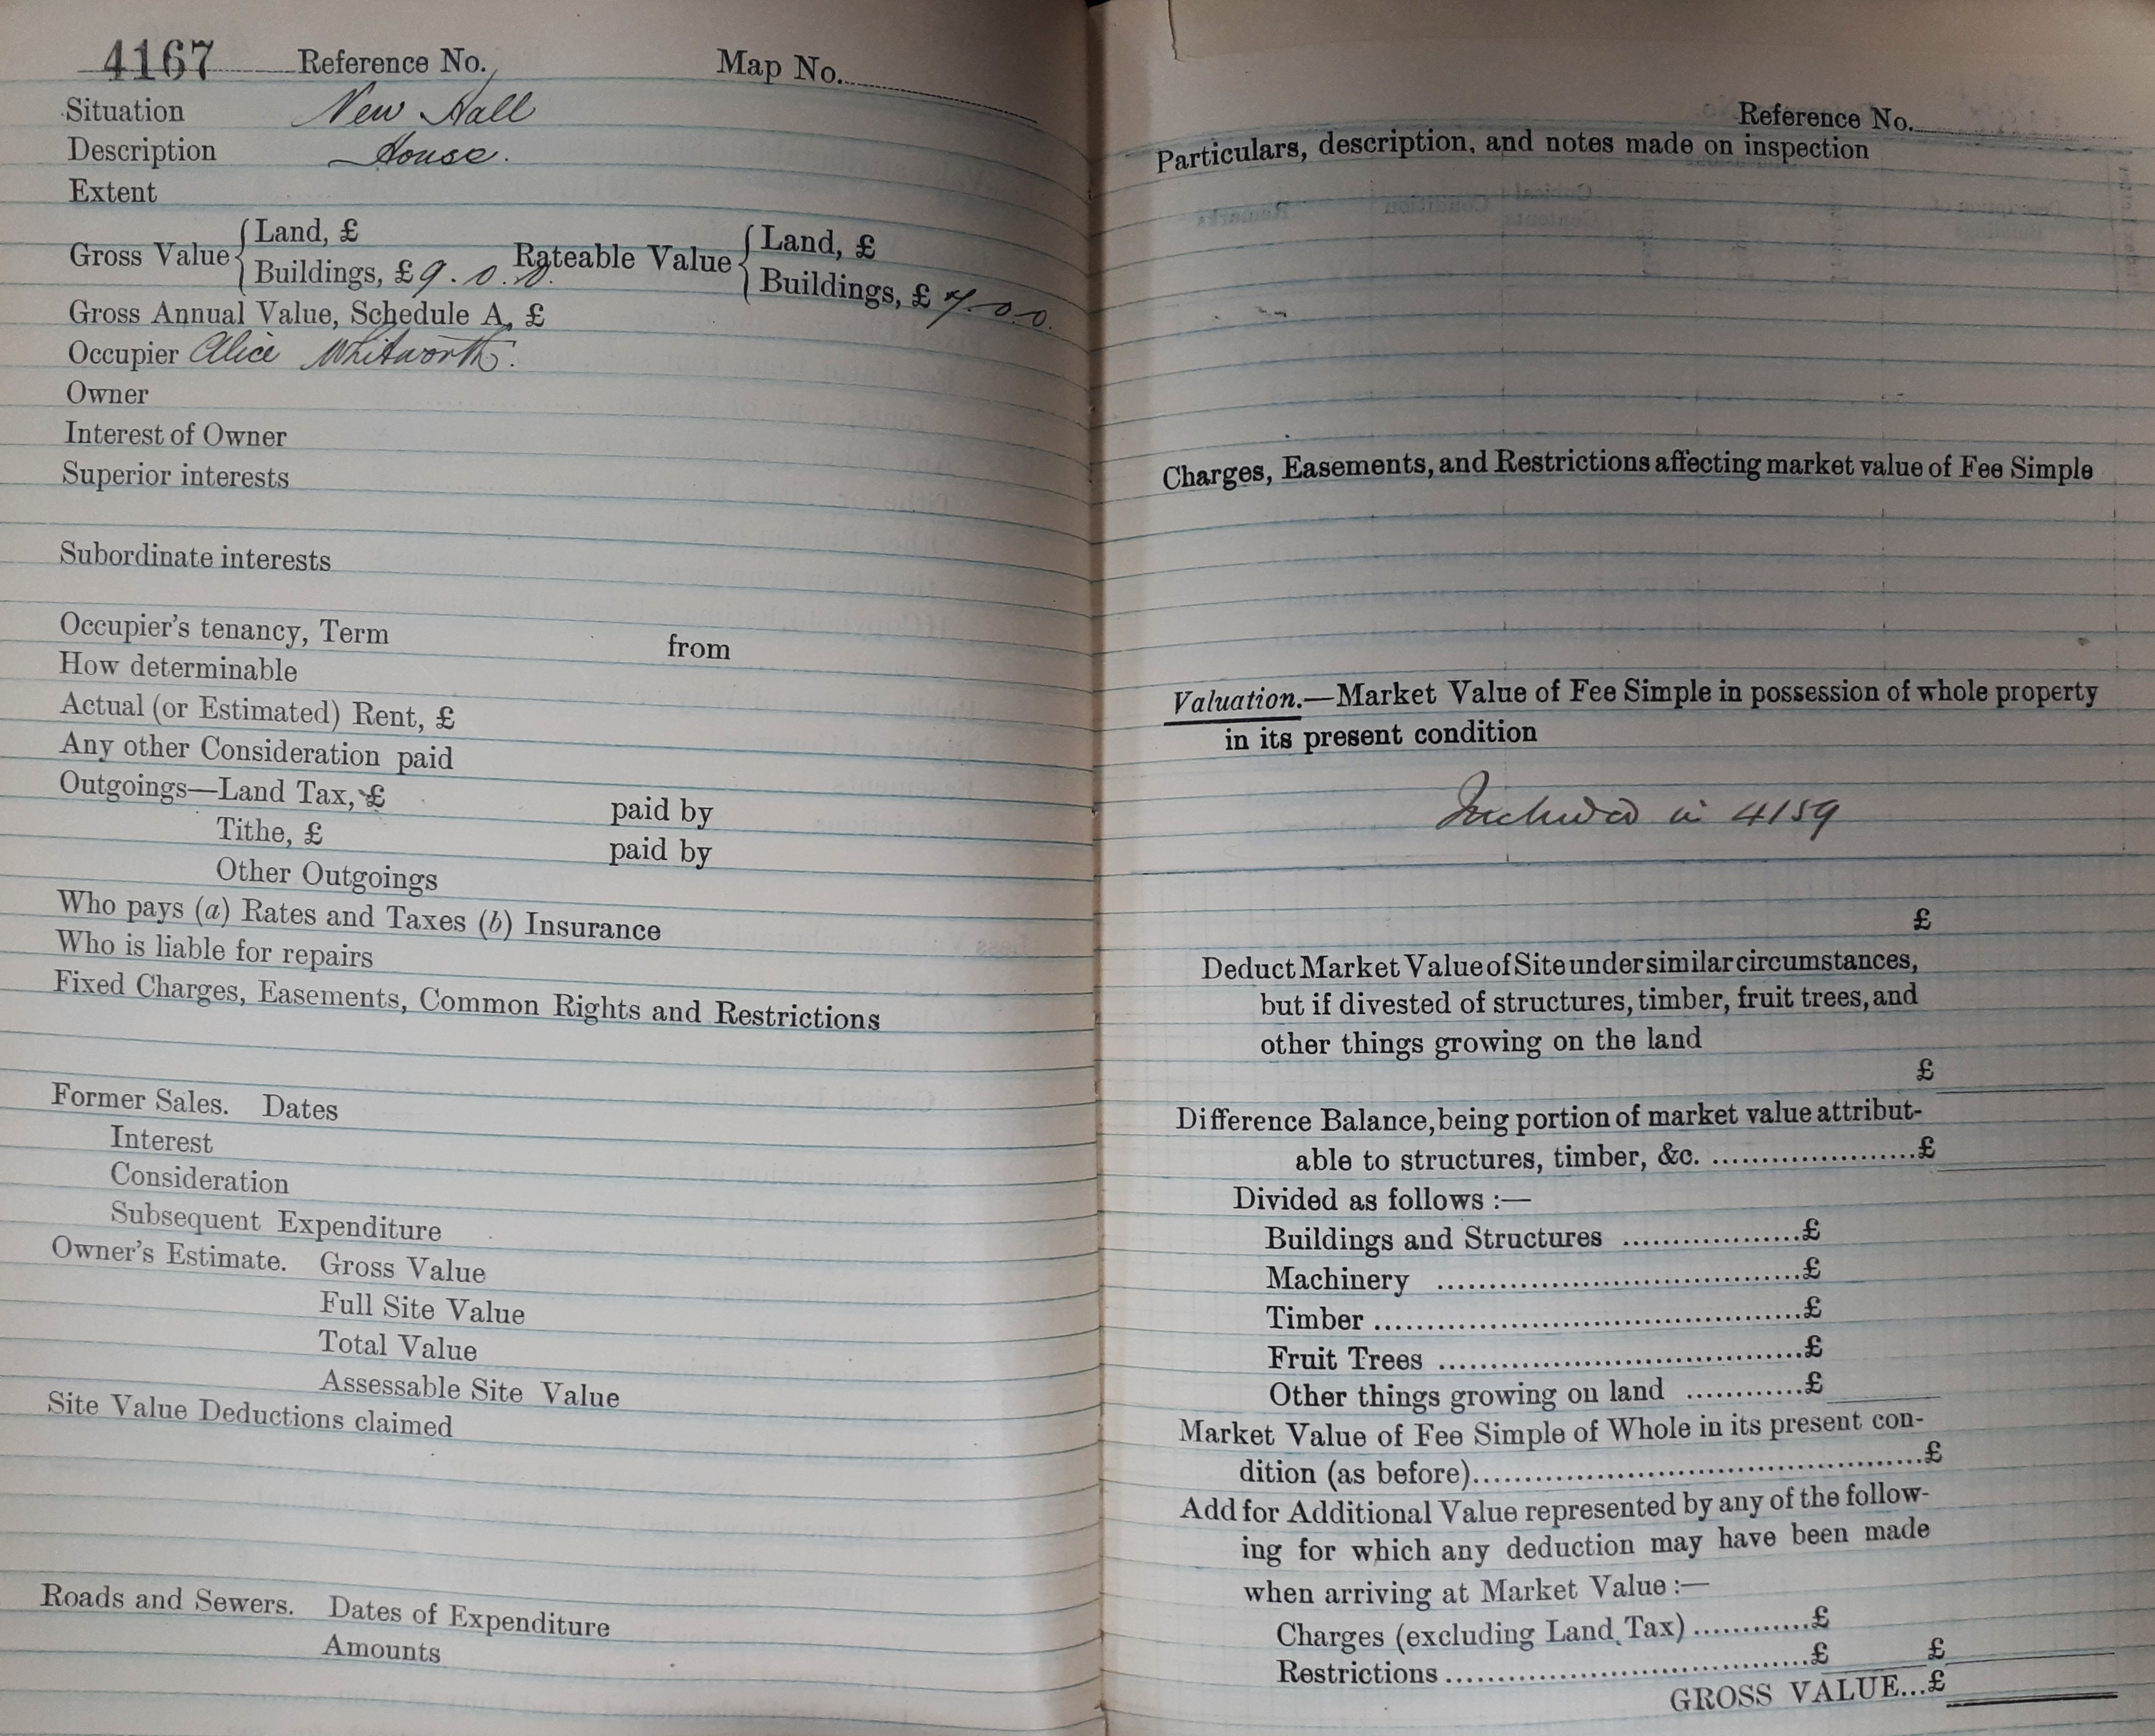 4167 Reference No. Map No.
Situation New Hall
Description House.
Extent
Gross Value { Land, £ Rateable Value { Land, £
Buildings, £ 9.0.0. Buildings, £ 7.0.0.
Gross Annual Value, Schedule A, £
Occupier Alice Whitworth.
Owner
Interest of Owner
Superior interests
Subordinate interests
Occupier's tenancy, Term from
How determinable
Actual (or Estimated) Rent, £
Any other Consideration paid
Outgoings—Land Tax, £ paid by
Tithe, £ paid by
Other Outgoings
Who pays (a) Rates and Taxes (b) Insurance
Who is liable for repairs
Fixed Charges, Easements, Common Rights and Restrictions
Former Sales. Dates
Interest
Consideration
Subsequent Expenditure
Owner's Estimate. Gross Value
Full Site Value
Total Value
Assessable Site Value
Site Value Deductions claimed
Roads and Sewers. Dates of Expenditure
Amounts
Reference No.
Particulars, description, and notes made on inspection
Charges, Easements, and Restrictions affecting market value of Fee Simple
Valuation.—Market Value of Fee Simple in possession of whole property
in its present condition
Included in 4159
£
Deduct Market Value of Site under similar circumstances,
but if divested of structures, timber, fruit trees, and
other things growing on the land
£
Difference Balance, being portion of market value attribut-
able to structures, timber, &c. ....................£
Divided as follows :—
Buildings and Structures ..................£
Machinery .....................................£
Timber ...........................................£
Fruit Trees .....................................£
Other things growing on land ............£
Market Value of Fee Simple of Whole in its present con-
dition (as before).............................................£
Add for Additional Value represented by any of the follow-
ing for which any deduction may have been made
when arriving at Market Value :—
Charges (excluding Land Tax) ............£
Restrictions ......................................£ £
GROSS VALUE...£